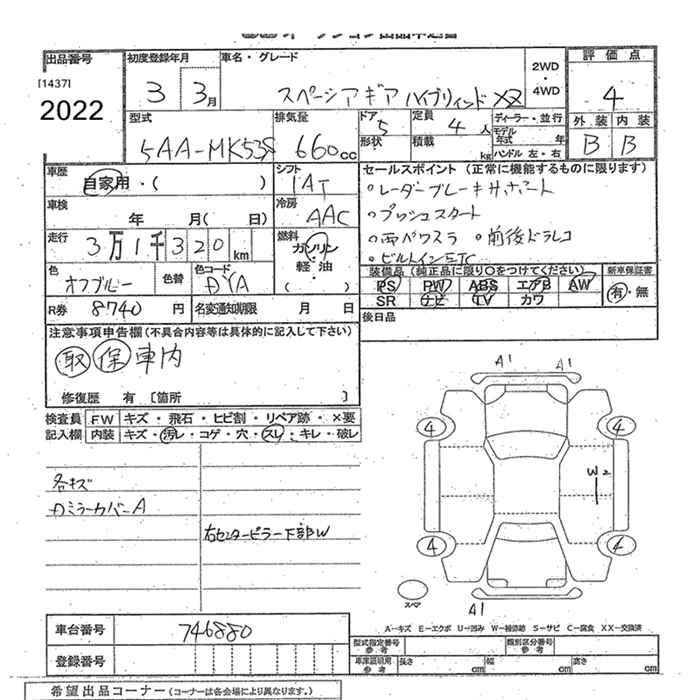 出品番号
[1437]
2022
初度登録年月
3 3月
車名・グレード
スペーシアギア ハイブリィッド XZ
2WD
・
4WD
評価点
4
外装 内装
B B
型式
5AA-MK53S
排気量
660cc
ドア
5
形状
定員
4人
積載
kg
ディーラー・並行
モデル年式 年
ハンドル 左・右
車歴
自家用・( )
車検
年 月( 日)
走行
3万1千320km
色
オフブルー
色替
色コード
R券 8740円
名変通知期限 月 日
シフト
IAT
冷房
AAC
燃料
ガソリン
軽・油
( )
セールスポイント (正常に機能するものに限ります)
○レーダーブレーキサポート
○プッシュスタート
○両パワスラ ○前後ドラレコ
○ビルトインETC
装備品 (純正品に限り○をつけてください)
PS PW ABS エアB AW
SR ナビ TV カワ
新車保証書
有・無
後日品
注意事項申告欄 (不具合内容等は具体的に記入して下さい)
取 保 車内
修復歴 有 〔箇所 〕
検査員
記入欄
FW キズ・飛石・ヒビ割・リペア跡・×要
内装 キズ・汚レ・コゲ・穴・スレ・キレ・破レ
各キズ
カミラーカバーA
右センターピラー下部W
A1 A1
4 4
W2
4 4
スペア
A1
A-キズ E-エクボ U-凹み W-補修跡 S-サビ C-腐食 XX-交換済
車台番号 746880
登録番号
型式指定番号
参考
類別区分番号
参考
車庫証明用
参考
長さ cm 幅 cm 高さ cm
希望出品コーナー (コーナーは各会場により異なります。)